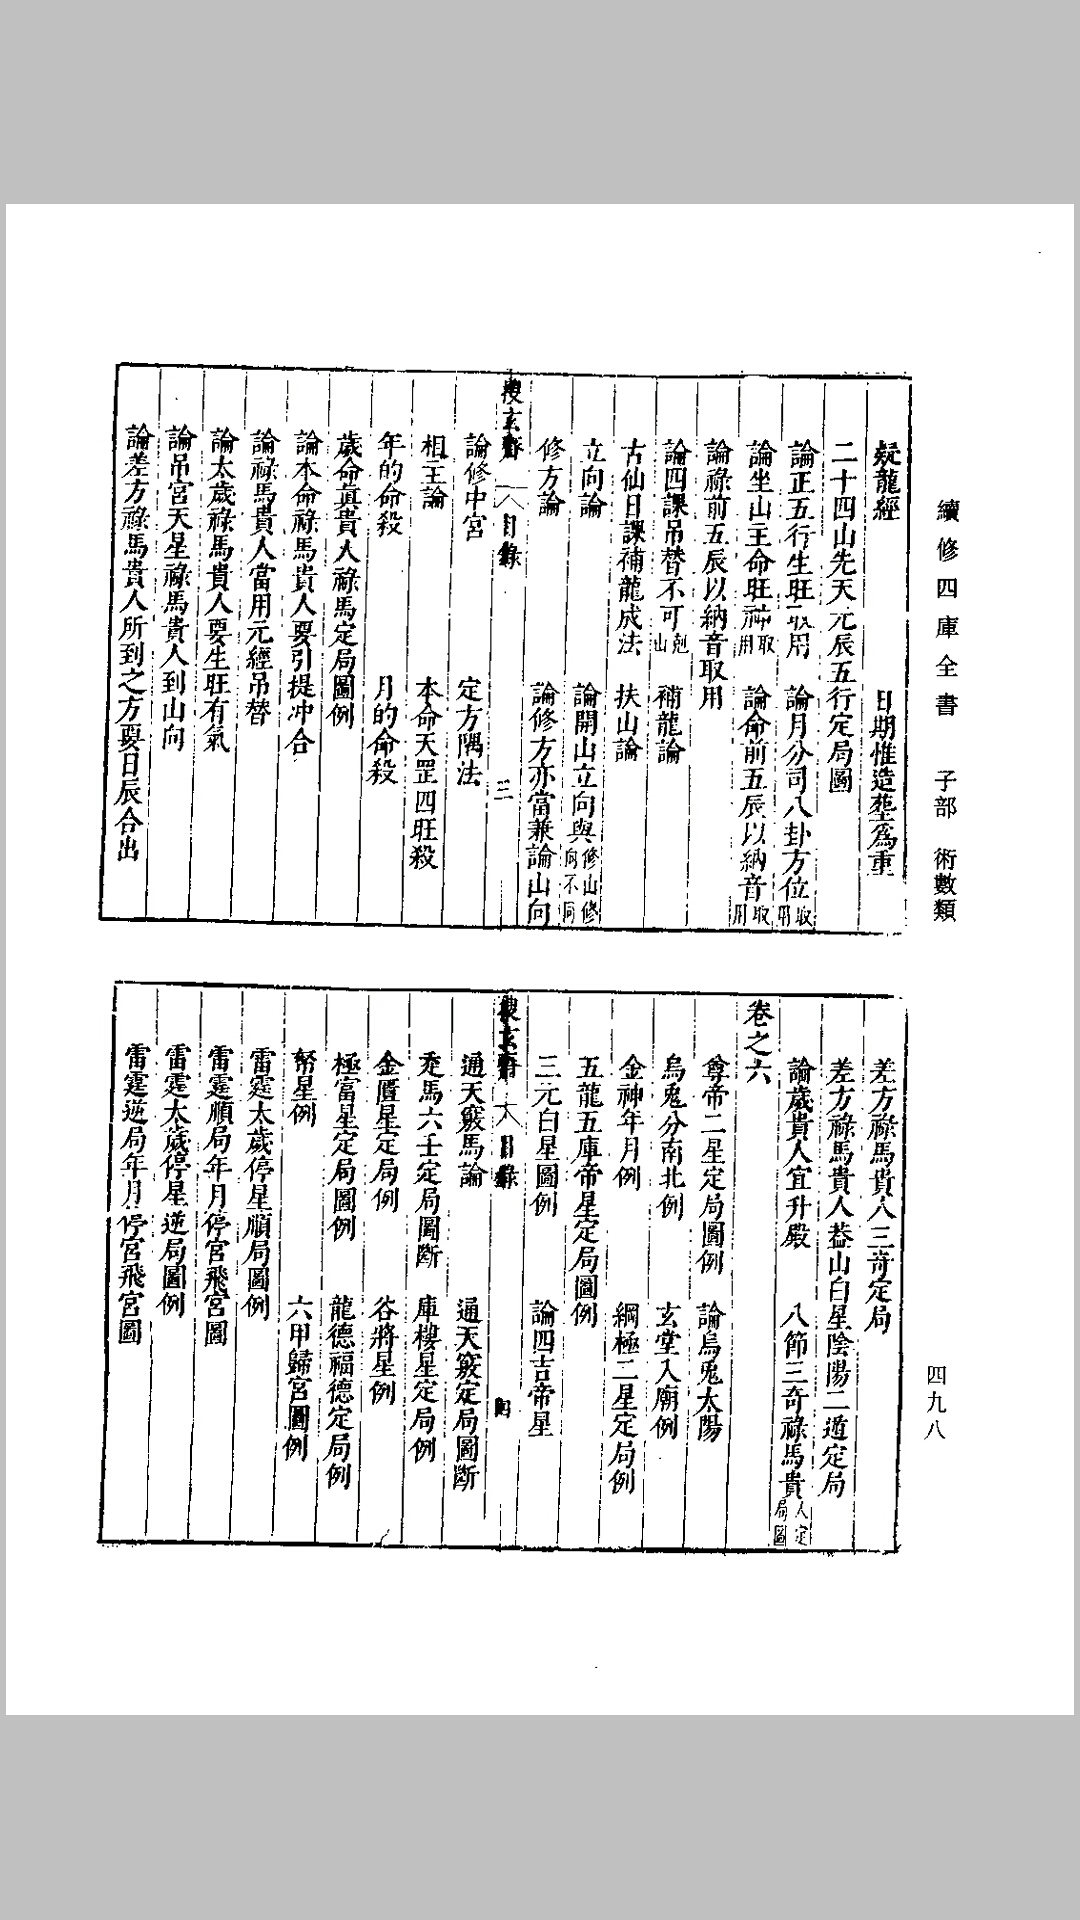 續修四庫全書　子部　術數類
疑龍經　日期惟造塟爲重
二十四山先天元辰五行定局圖
論正五行生旺取用　論月分司八卦方位取用
論坐山主命旺神取用　論命前五辰以納音取用
論祿前五辰以納音取用
論四課吊替不可剋出　補龍論
古仙日課補龍成法　扶山論
立向論　論開山立向與修山修向不同
修方論　論修方亦當兼論山向
搜玄曠　八　目錄　三
論修中宮　定方隅法
相主論　本命天罡四旺殺
年的命殺　月的命殺
歲命眞貴人祿馬定局圖例
論本命祿馬貴人要引提冲合
論祿馬貴人當用元經吊替
論太歲祿馬貴人要生旺有氣
論吊宮天星祿馬貴人到山向
論差方祿馬貴人所到之方要日辰合出
差方祿馬貴人三奇定局
差方祿馬貴人葢山白星陰陽二遁定局
論歲貴人宜升殿　八節三奇祿馬貴人定局圖
卷之六
尊帝二星定局圖例　論烏兎太陽
烏兎分南北例　玄堂入廟例
金神年月例　綱極二星定局例
五龍五庫帝星定局圖例
三元白星圖例　論四吉帝星
目錄　四
通天竅馬論　通天竅定局圖斷
走馬六壬定局圖斷　庫樓星定局例
金匱星定局例　谷將星例
極富星定局圖例　龍德福德定局例
帑星例　六甲歸宮圖例
雷霆太歲停星順局圖例
雷霆順局年月停宮飛宮圖
雷霆太歲停星逆局圖例
雷霆逆局年月停宮飛宮圖
四九八